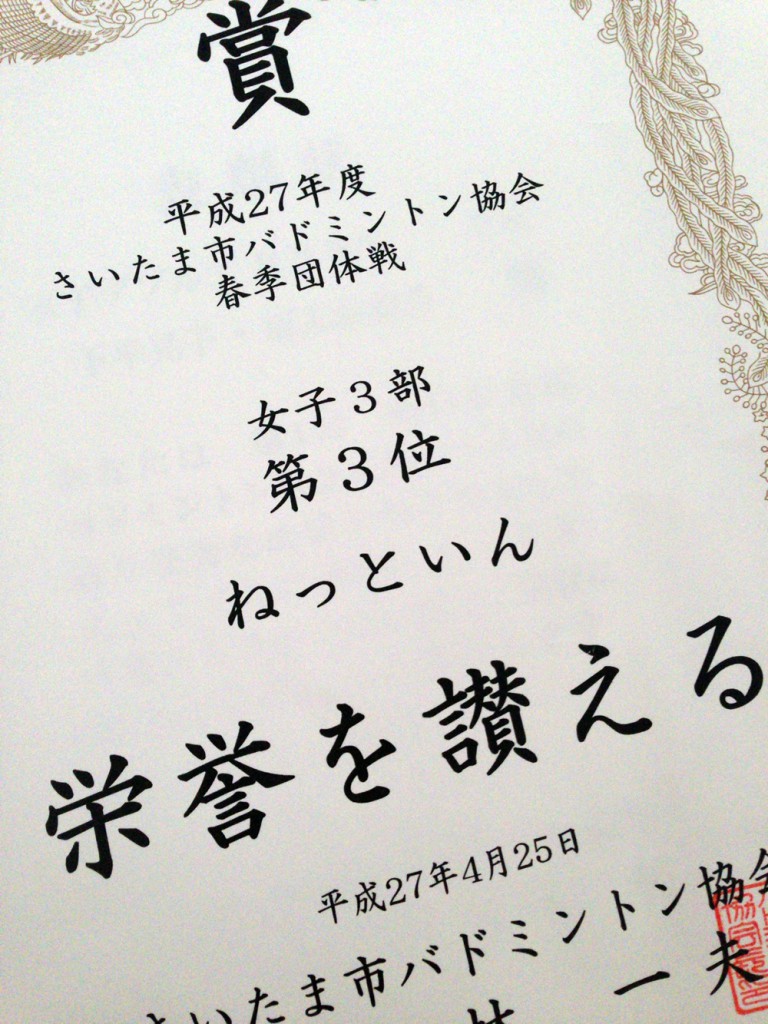 賞
平成27年度
さいたま市バドミントン協会
春季団体戦
女子3部
第3位
ねっといん
栄誉を讃える
平成27年4月25日
さいたま市バドミントン協会
一夫